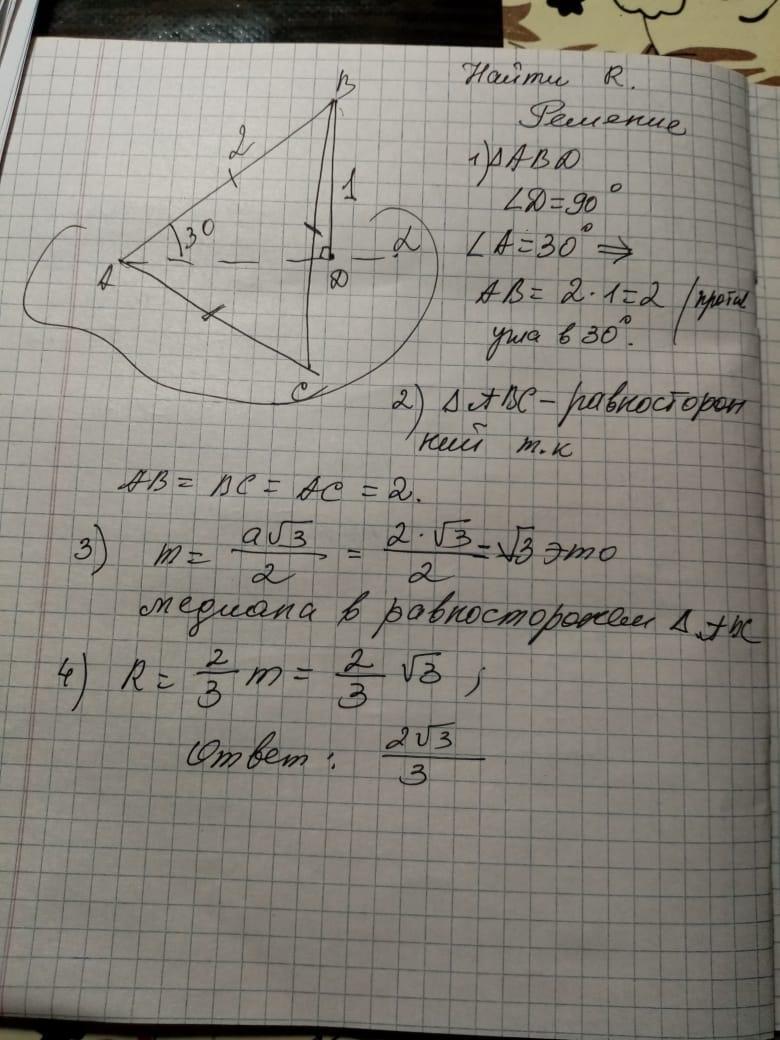 Найти R.
Решение
B
2
1
30
α
A
D
C
1) ΔABD
∠D=90°
∠A=30° ⇒
AB = 2·1=2 /против
угла в 30°.
2) ΔABC – равносторон
ний т.к
AB = BC = AC = 2.
3) m = a√3/2 = 2·√3/2 = √3 это
медиана в равностороннем Δ ABC
4) R = 2/3 m = 2/3 √3 ;
Ответ: 2√3/3